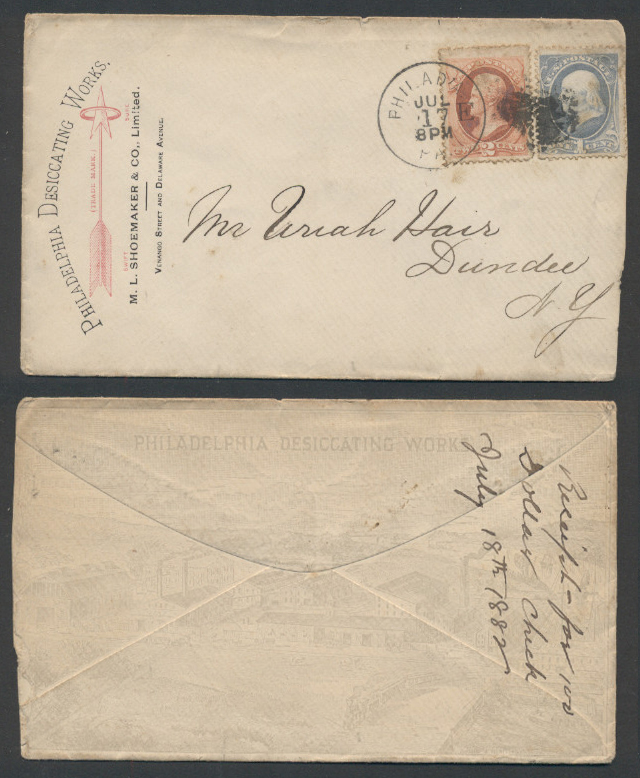 PHILADELPHIA DESICCATING WORKS.
SURE.
(TRADE MARK.)
SWIFT
M. L. SHOEMAKER & CO., Limited.
VENANGO STREET AND DELAWARE AVENUE.
PHILADA
JUL
17
8PM
PA
E
U.S. POSTAGE
Mr Uriah Hair
Dundee
N. Y
PHILADELPHIA DESICCATING WORKS
Receipt - for 100
Dollar Check
July 18th 1882